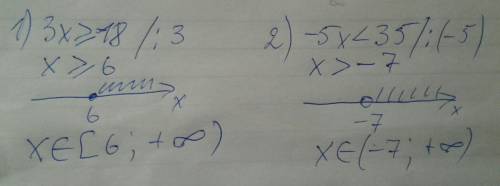 1) 3x ≥ 18 /: 3
x ≥ 6
6 x
x ∈ [6 ; +∞)
2) -5x < 35 /: (-5)
x > -7
-7 x
x ∈ (-7 ; +∞)